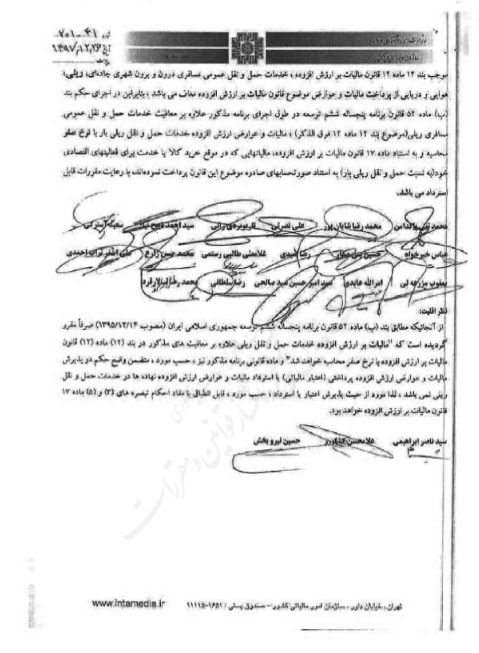 ۲۰۱-۴۱
۱۳۹۷/۱۲/۲۶
موجب بند ۱۲ ماده ۱۲ قانون مالیات بر ارزش افزوده ، خدمات حمل و نقل عمومی مسافری درون و برون شهری جاده‌ای، ریلی،
هوایی و دریایی از پرداخت مالیات و عوارض موضوع قانون مالیات بر ارزش افزوده معاف می باشد ، بنابراین در اجرای حکم بند
(ب) ماده ۵۲ قانون برنامه پنجساله ششم توسعه در طول اجرای برنامه مذکور علاوه بر معافیت خدمات حمل و نقل عمومی
مسافری ریلی(موضوع بند ۱۲ ماده ۱۲ فوق الذکر) ، مالیات و عوارض ارزش افزوده خدمات حمل و نقل ریلی بار با نرخ صفر
محاسبه و به استناد ماده ۱۷ قانون مالیات بر ارزش افزوده، مالیاتهایی که در موقع خرید کالا یا خدمت برای فعالیتهای اقتصادی
خود(به نسبت حمل و نقل ریلی بار) به استناد صورتحسابهای صادره موضوع این قانون پرداخت نموده‌اند، با رعایت مقررات قابل
استرداد می باشد.
محمد رضا شایان پور علی نصرتی
عباس خیرخواه رضا سعیدی غلامعلی طالبی رستمی محمد حسن زارع
یعقوب امرالله عابدی سید امیرحسین سید صالحی رضا سلطانی
نظر اقلیت:
از آنجائیکه مطابق بند (ب) ماده ۵۲ قانون برنامه پنجساله ششم توسعه جمهوری اسلامی ایران (مصوب ۱۳۹۵/۱۲/۱۴) صرفاً مقرر
گردیده است که "مالیات بر ارزش افزوده خدمات حمل و نقل ریلی علاوه بر معافیت های مذکور در بند (۱۲) ماده (۱۲) قانون
مالیات بر ارزش افزوده با نرخ صفر محاسبه خواهد شد" و ماده قانونی برنامه مذکور نیز ، حسب مورد ، متضمن وضع حکم در پذیرش
مالیات و عوارض ارزش افزوده پرداختی (اعتبار مالیاتی) یا استرداد مالیات و عوارض ارزش افزوده نهاده ها در خدمات حمل و نقل
ریلی نمی باشد ، لذا مورد از حیث پذیرش اعتبار یا استرداد ، حسب مورد ، قابل انطباق با مفاد احکام تبصره های (۳) و (۵) ماده ۱۷
قانون مالیات بر ارزش افزوده خواهد بود.
سید ناصر ابراهیمی غلامحسن کشاورز حسین نیرو بخش
تهران، خیابان داور ، سازمان امور مالیاتی کشور - صندوق پستی : ۱۶۵۱-۱۱۱۱۵ www.intamedia.ir